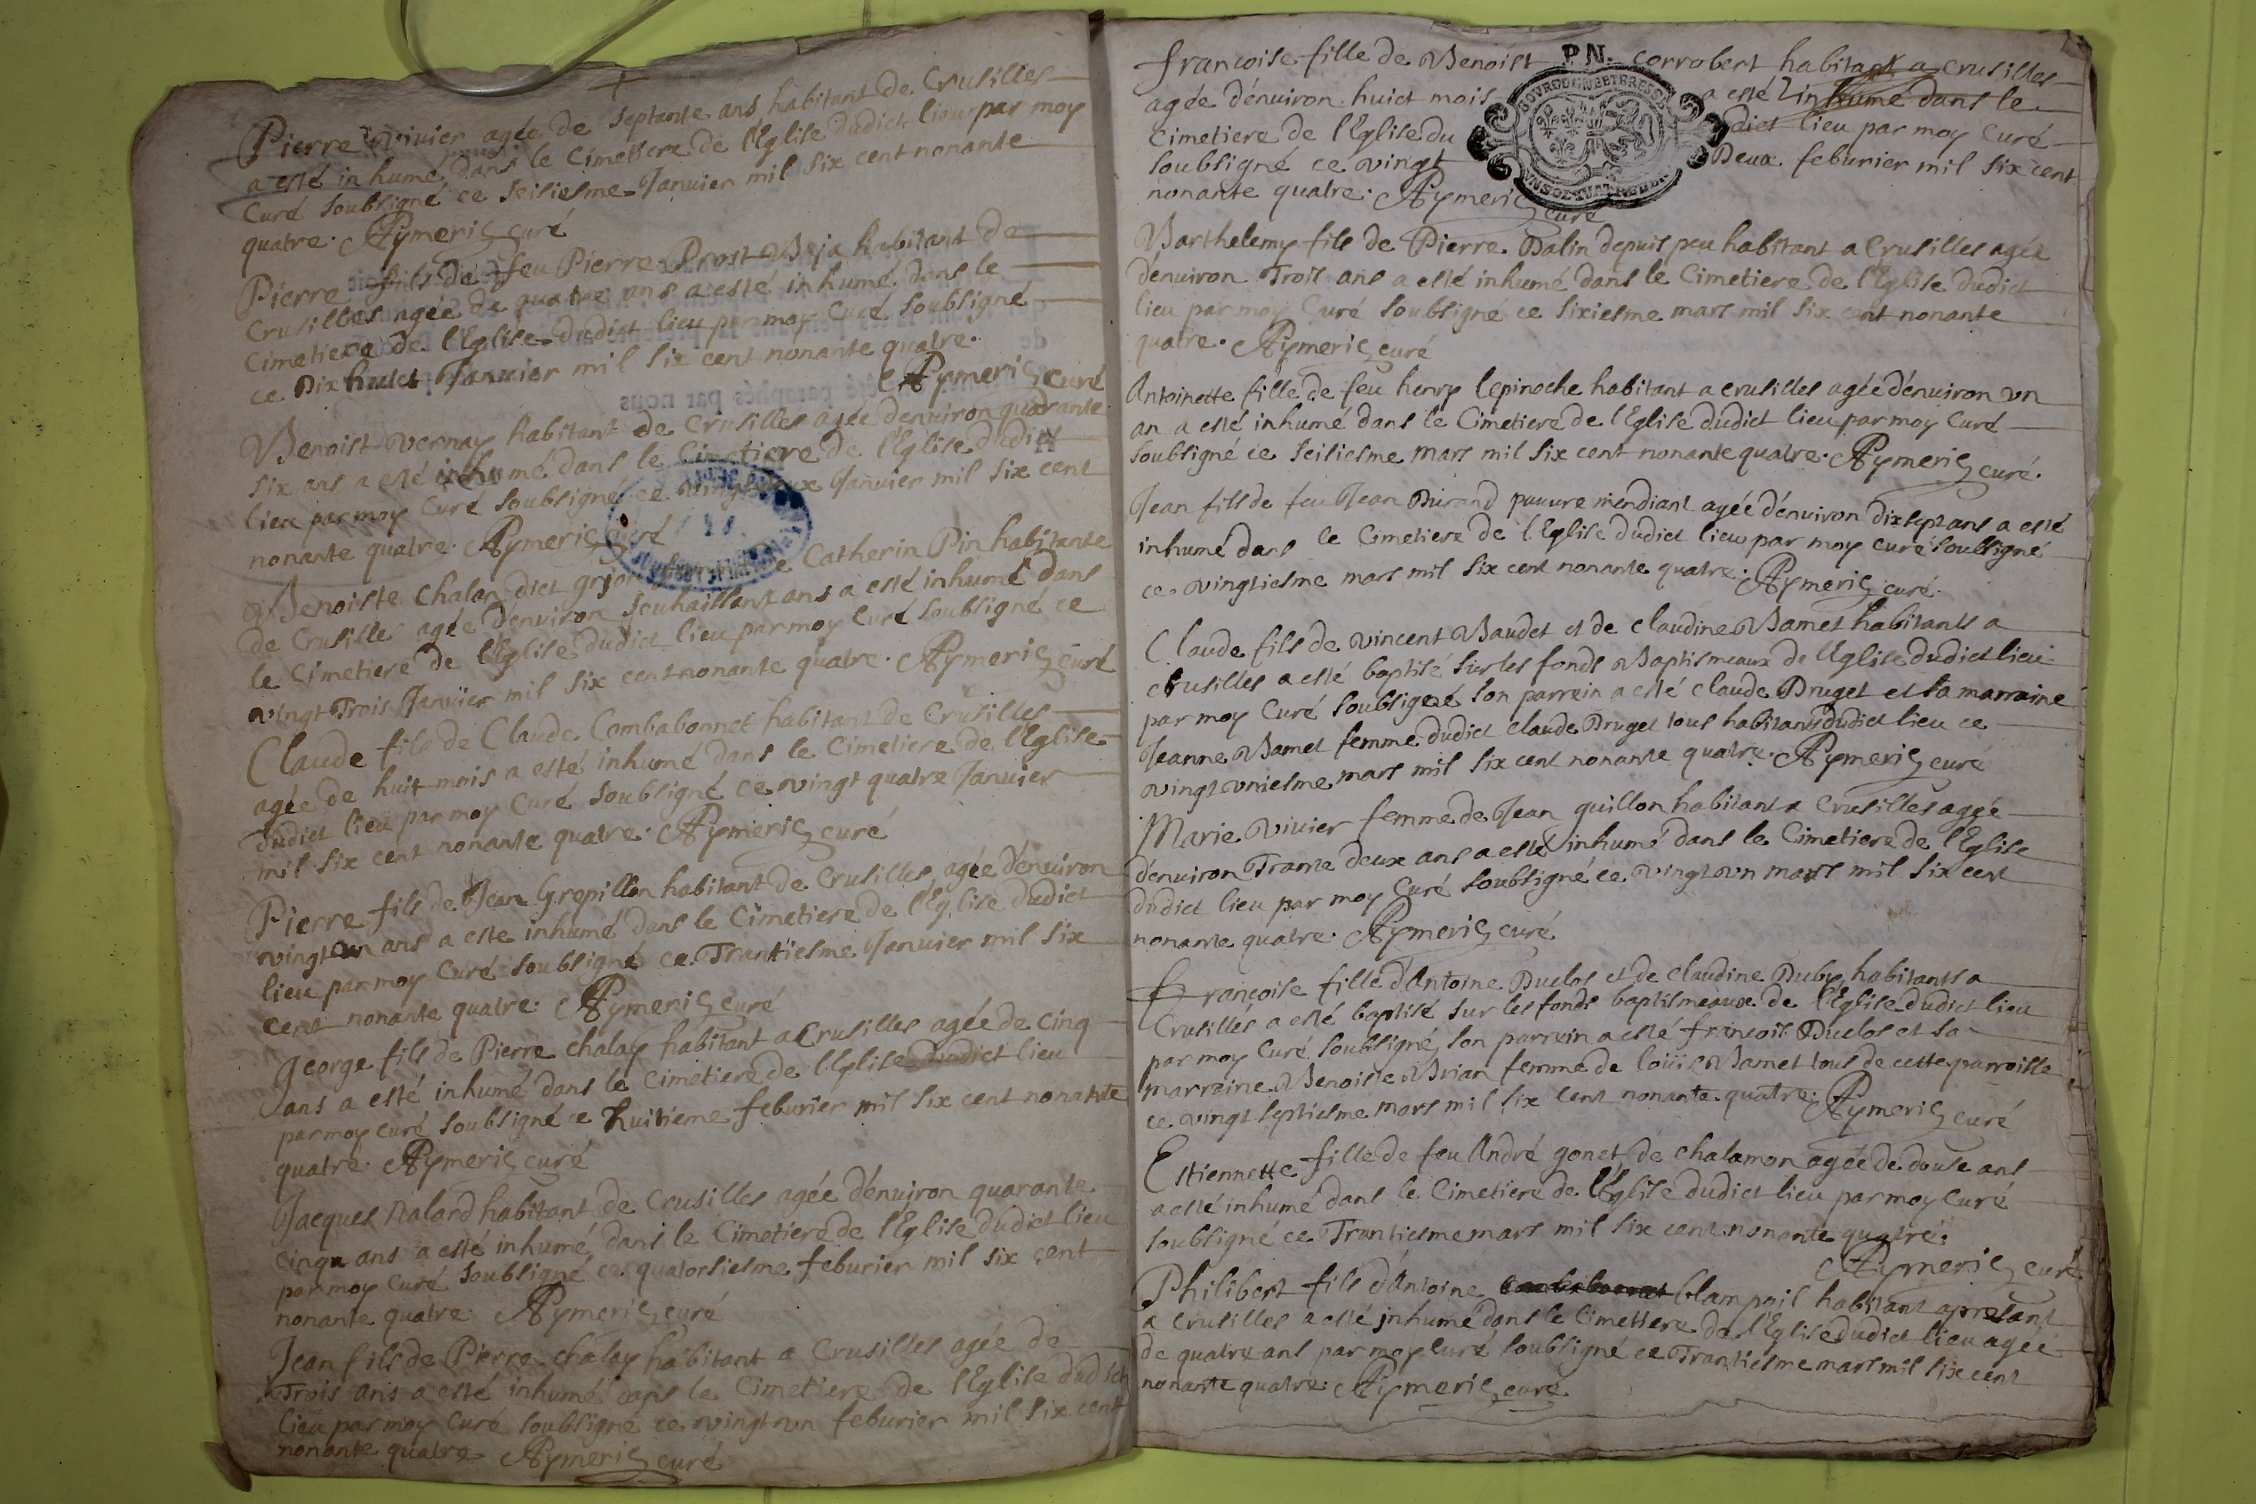 Pierre Vivier agée de septante ans habitant de Crusilles
a esté inhumé dans le Cimetiere de l'Eglise dudict lieu par moy
Curé soubsigné ce seisiesme Januier mil six cent nonante
quatre. Aymeric curé
Pierre fils de feu Pierre Prost Beja habitant de
Crusilles agée de quatre ans a esté inhumé dans le
Cimetiere de l'Eglise dudict lieu par moy Curé soubsigné
ce Dix huict Januier mil six cent nonante quatre.
Aymeric curé
Benoist Vernay habitant de Crusilles agée d'enuiron quarante
six ans a esté inhumé dans le Cimetiere de l'Eglise dudict
lieu par moy Curé soubsigné ce vingt deux Januier mil six cent
nonante quatre. Aymeric curé
Benoiste Chalan dict Catherin Pin habitante
de Crusilles agée d'enuiron ans a esté inhumé dans
le Cimetiere de l'Eglise dudict lieu par moy Curé soubsigné ce
vingt Trois Januier mil six cent nonante quatre. Aymeric Curé
Claude fils de Claude Combabonnet habitant de Crusilles
agée de huit mois a esté inhumé dans le Cimetiere de l'Eglise
dudict lieu par moy Curé soubsigné ce vingt quatre Januier
mil six cent nonante quatre. Aymeric curé
Pierre fils de Jean Grepillon habitant de Crusilles agée d'enuiron
vingt un ans a esté inhumé dans le Cimetiere de l'Eglise dudict
lieu par moy Curé soubsigné ce Trantiesme Januier mil six
cent nonante quatre. Aymeric curé
George fils de Pierre chalay habitant a Crusilles agée de cinq
ans a esté inhumé dans le Cimetiere de l'Eglise dudict lieu
par moy curé soubsigné ce huitieme feburier mil six cent nonante
quatre. Aymeric curé
Jacques Nalard habitant de Crusilles agée d'enuiron quarante
cinq ans a esté inhumé dans le Cimetiere de l'Eglise dudict lieu
par moy Curé soubsigné ce quatorsiesme feburier mil six cent
nonante quatre. Aymeric curé
Jean fils de Pierre chalay habitant a Crusilles agée de
Trois ans a esté inhumé dans le Cimetiere de l'Eglise dudict
lieu par moy Curé soubsigné ce vingt vn feburier mil six cent
nonante quatre. Aymeric curé
francoise fille de Benoist P.N. corrobert habitant a Crusilles
agée d'enuiron huict mois a esté inhumé dans le
Cimetiere de l'Eglise du dict lieu par moy Curé
soubsigné ce vingt Deux feburier mil six cent
nonante quatre. Aymeric curé
Barthelemy fils de Pierre Dalin depuis peu habitant a Crusilles agée
d'enuiron Trois ans a esté inhumé dans le Cimetiere de l'Eglise dudict
lieu par moy Curé soubsigné ce sixiesme mars mil six cent nonante
quatre. Aymeric curé
Antoinette fille de feu henry lepinoche habitant a crusilles agée d'enuiron vn
an a esté inhumé dans le Cimetiere de l'Eglise dudict lieu par moy Curé
soubsigné ce seisiesme mars mil six cent nonante quatre. Aymeric curé.
Jean fils de feu Jean Durand pauure mendiant agée d'enuiron dix sept ans a esté
inhumé dans le Cimetiere de l'Eglise dudict lieu par moy curé soubsigné
ce vingtiesme mars mil six cent nonante quatre. Aymeric curé.
Claude fils de vincent Baudet et de claudine Bamet habitants a
crusilles a esté baptisé sur les fonds Baptismeaux de l'Eglise dudict lieu
par moy Curé soubsigné son parrein a esté claude Druget et sa marraine
Jeanne Bamet femme dudict claude Druget tous habitants dudict lieu ce
vingt vniesme mars mil six cent nonante quatre. Aymeric curé
Marie Vivier femme de Jean quillon habitant a Crusilles agée
d'enuiron Trante deux ans a esté inhumé dans le Cimetiere de l'Eglise
dudict lieu par moy Curé soubsigné ce vingt vn mars mil six cent
nonante quatre. Aymeric curé
françoise fille d'Antoine Duclos et de claudine Duby habitants a
Crusilles a esté baptisé sur les fonds baptismeaux de l'Eglise dudict lieu
par moy Curé soubsigné, son parrein a esté françois Duclos et sa
marraine Benoiste Brian femme de loüis Bamet tous de cette parroisse
ce vingt septiesme mars mil six cent nonante quatre. Aymeric curé
Estiennette fille de feu André gonet de chalamon agée de douse ans
a esté inhumé dans le Cimetiere de l'Eglise dudict lieu par moy Curé
soubsigné ce Trantiesme mars mil six cent nonante quatre.
Aymeric curé
Philibert fils d'Antoine blampoil habitant apresant
a Crusilles a esté inhumé dans le Cimettiere de l'Eglise dudict lieu agée
de quatre ans par moy Curé soubsigné ce Trantiesme mars mil six cent
nonante quatre. Aymeric curé